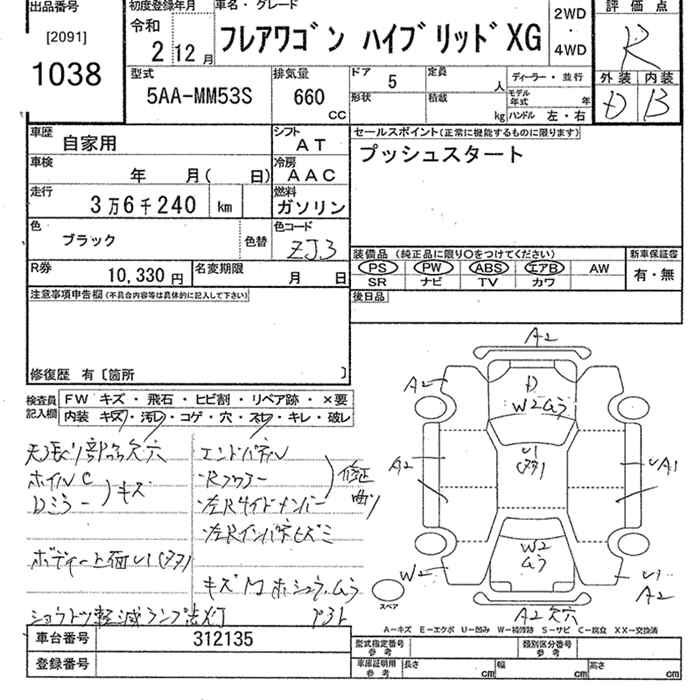 出品番号
[2091]
1038
初度登録年月
令和
2 12月
車名・グレード
フレアワゴン ハイブリッドXG
2WD
・
4WD
評価点
R
外装 内装
D B
型式
5AA-MM53S
排気量
660
CC
ドア 5
定員 人
ディーラー・並行
形状
積載 kg
モデル年式 年
ハンドル 左・右
車歴 自家用
シフト AT
車検 年 月( 日)
冷房 AAC
走行 3万6千240 km
燃料 ガソリン
色 ブラック
色替
色コード ZJ3
R券 10,330 円
名変期限 月 日
セールスポイント(正常に機能するものに限ります)
プッシュスタート
装備品 (純正品に限り○をつけてください)
PS PW ABS エアB AW
SR ナビ TV カワ
新車保証書
有・無
後日品
注意事項申告欄(不具合内容等は具体的に記入して下さい)
修復歴 有〔箇所 〕
検査員記入欄
FW キズ・飛石・ヒビ割・リペア跡・×要
内装 キズ・汚レ・コゲ・穴・スレ・キレ・破レ
天張り部品欠穴
ホイルC
Dミラー
キズ
ボディー上面U1(タタ)
エンドパネル
Rフロアー
左Rサイドメンバー
修正
曲り
左Rインパネヒズミ
キズ凹ホシュウ、ムラ
ショウトツ軽減ランプ点灯
A2
A2
D
W2ムラ
U1
(タタ)
A2
UA1
W2
ムラ
W2
U1
A2
A2欠穴
スペア
A-キズ E-エクボ U-凹み W-補修跡 S-サビ C-腐食 XX-交換済
車台番号 312135
登録番号
型式指定番号
参考
類別区分番号
参考
車庫証明用
参考
長さ cm
幅 cm
高さ cm